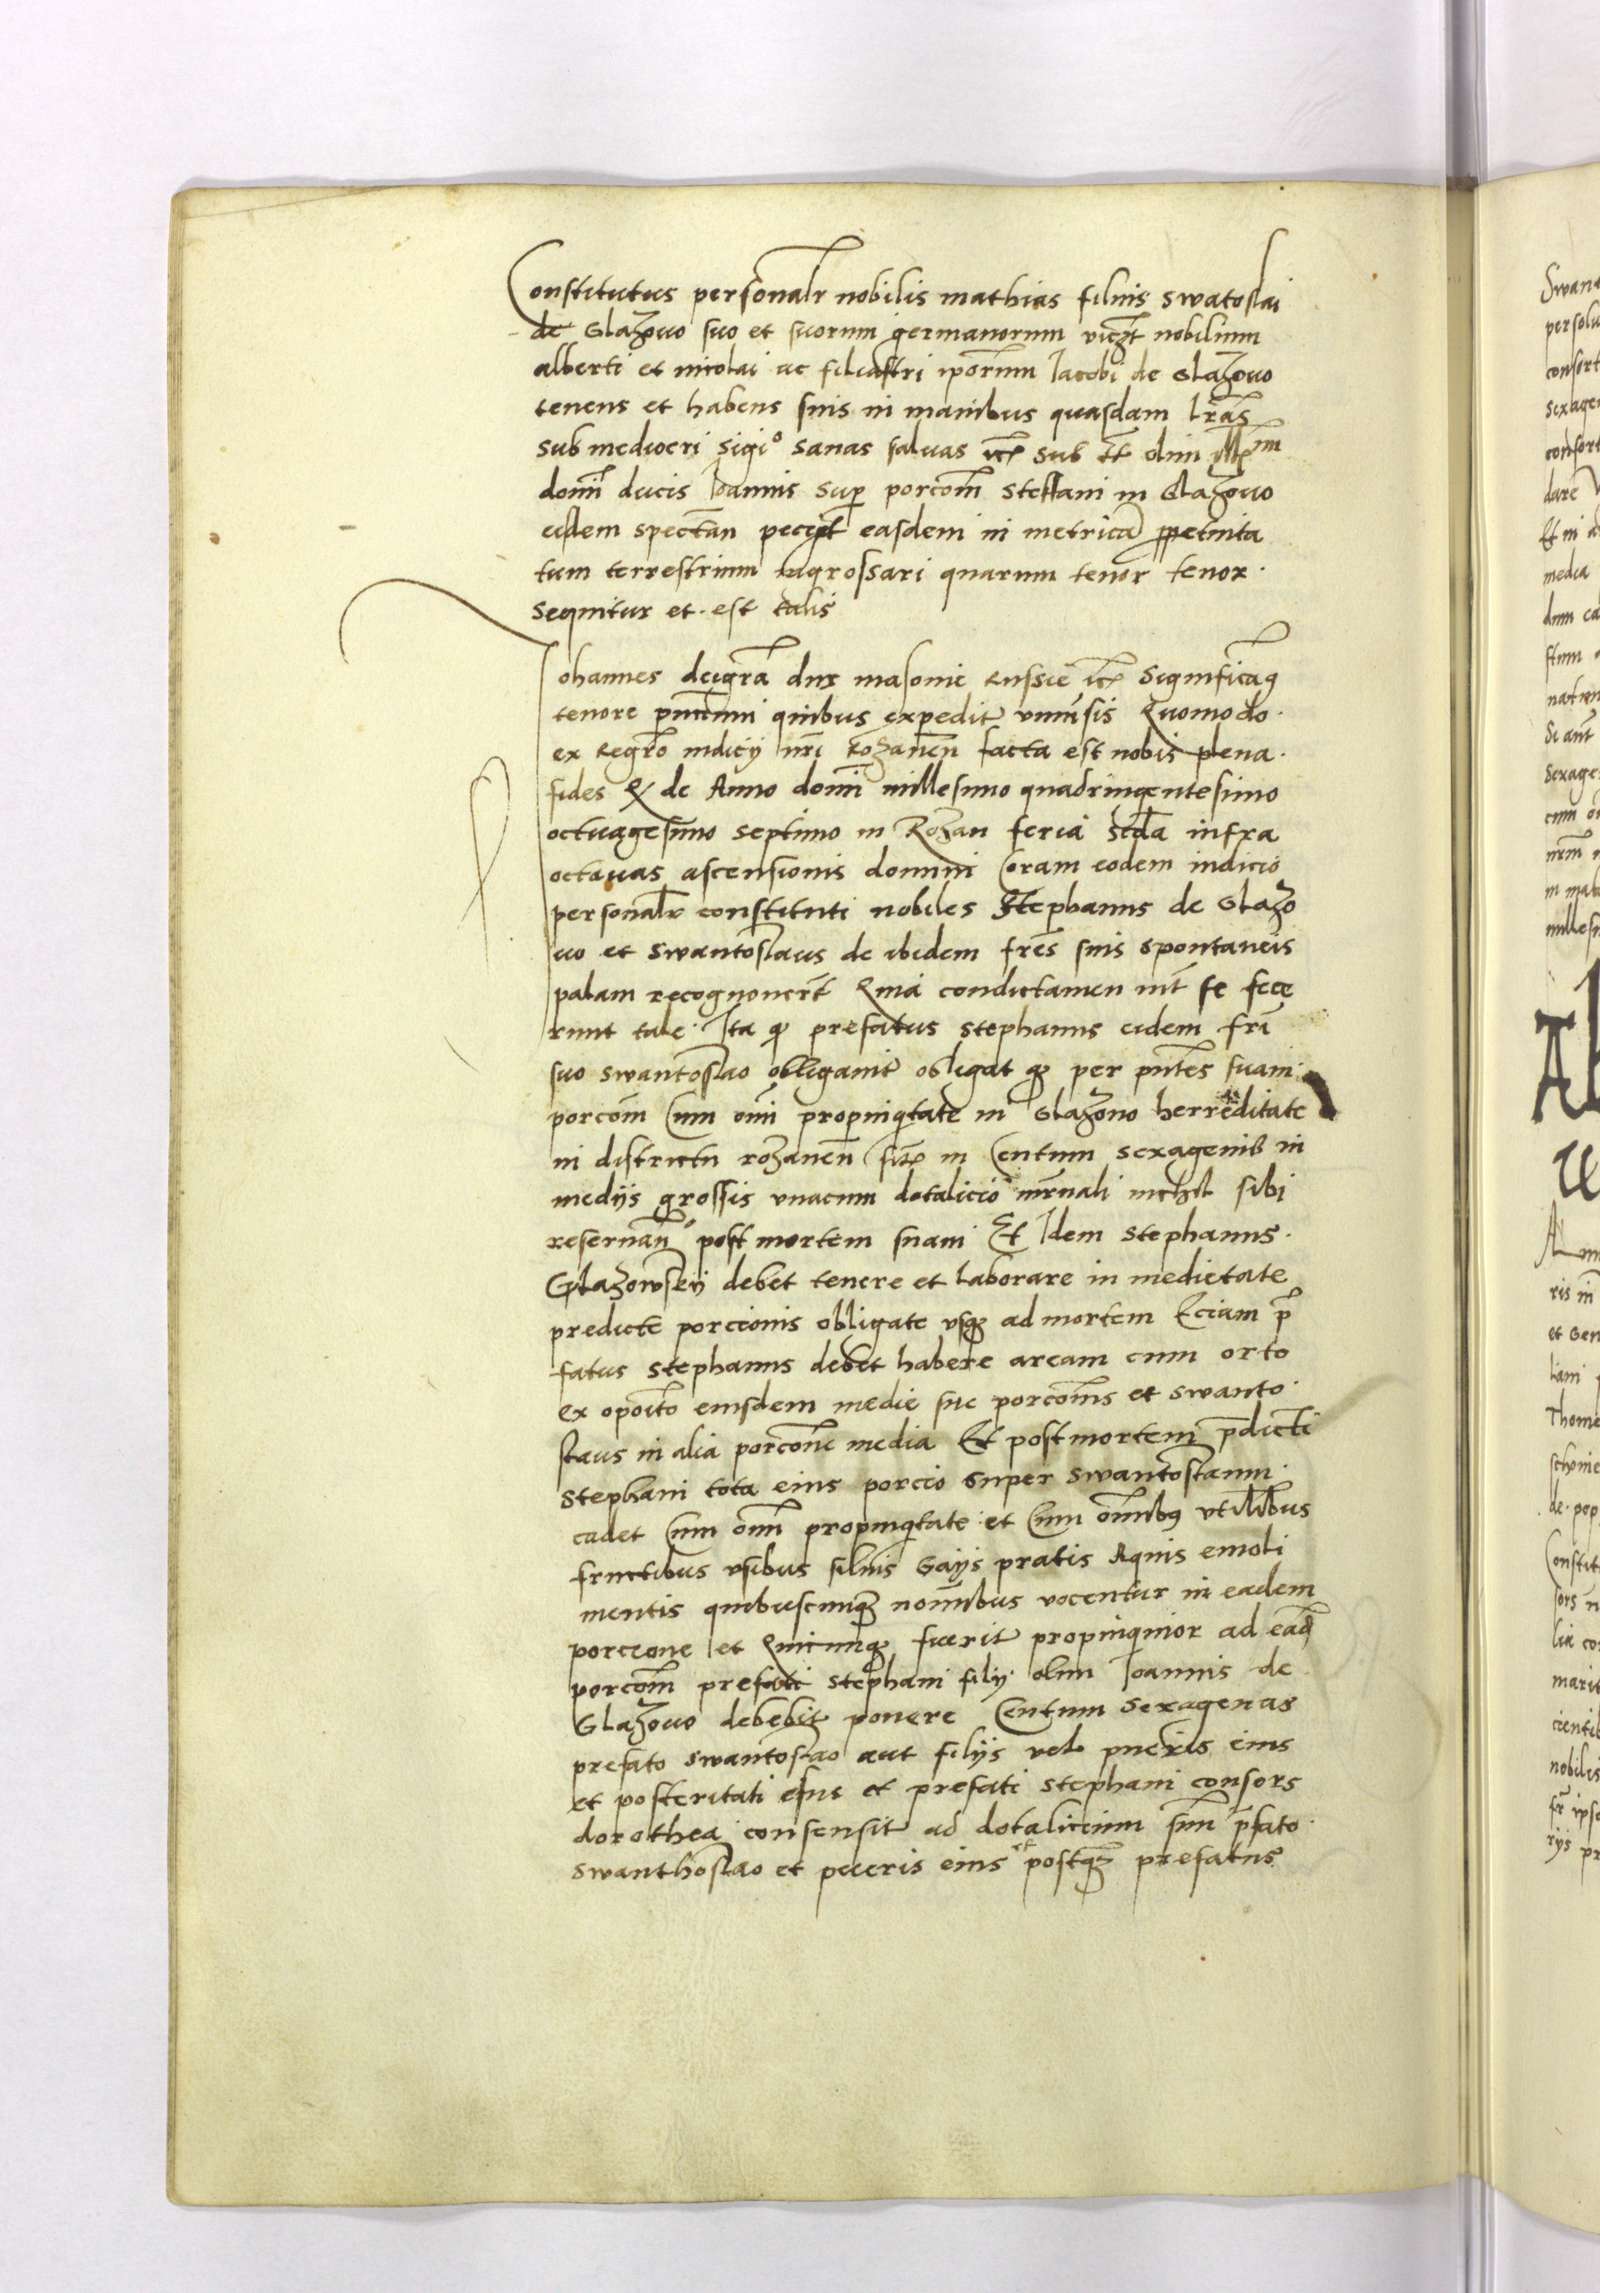 Constitutus personalr nobilis mathias filius swatoslai
de Glazouo suo et suorum germanorum viczt nobilium
alberti et nicolai ac filiastri iporum Iacobi de Glazouo
tenens et habens suis in manibus quasdam lras
sub mediocri sigio sanas saluas etc sub tt olim
domi ducis Ioannis super porcom steffani in Glazouo
eisdem spectan peciit easdem in metrica perpetuita
tum terrestrium ingrossari quarum tenor tenor
sequitur et est talis
Iohannes deigra dux masouie Russie etc Significamq
tenore pntium quibus expedit vniuersis Quomodo
ex Regro iudicij nri Rozanen facta est nobis plena
fides Q de Anno domi millesimo quadringentesimo
octuagesimo septimo in Rozan feria scda infra
octauas ascensionis domini Coram eodem iudicio
personalr constituti nobiles Stephanus de Glazo
uo et swantoslaus de ibidem fres suis spontaneis
palam recognouerut Quia condictamen int se fece
runt tale Ita q prefatus stephanus eidem fri
suo swantoslao obligauit obligat q per pntes suam
porcom Cum omi propinqtate in Glazouo herreditate
in districtu rozanen sitam in Centum sexagenis in
medijs grossis vnacum dotalicio mrnali nichil sibi
reseruan post mortem suam Et Idem stephanus
Glazowsky debet tenere et laborare in medietate
predicte porcionis obligate vsq ad mortem Eciam pre
fatus stephanus debet habere aream cum orto
ex opoito eiusdem medie sue porconis et swanto
slaus in alia porcone media Et post mortem pdicti
stephani tota eius porcio super swantoslaum
cadet Cum omi propinqtate et Cum omibus vtilibus
fructibus vsibus siluis Gaijs pratis Aquis emoli
mentis quibuscunq nomibus vocentur in eadem
porcione et Quicunq fuerit propinquior ad eadem
porcom prefati stephani filij olim Ioannis de
Glazouo debebit ponere Centum sexagenas
prefato swantoslao aut filijs vel pueris eius
et posteritati eius et prefati stephani consors
dorothea consensit ad dotalicium suum pfato
swanthoslao et pueris eius postq prefatus